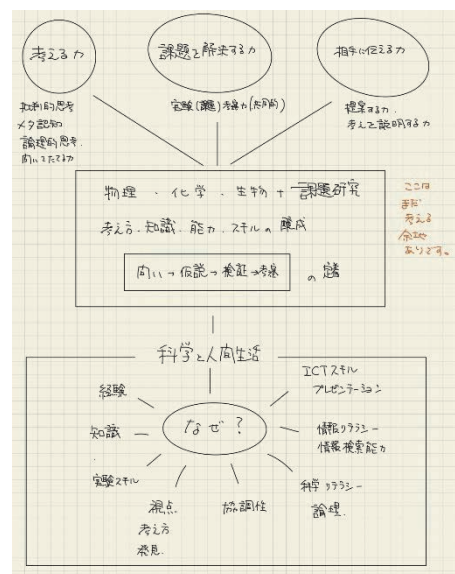 考える力
課題を解決する力
相手に伝える力
批判的思考
メタ認知
論理的思考
問いをたてる力
実験(課題)考察力(長期的)
提案する力
考えを説明する力
物理・化学・生物+課題研究
考え方・知識・能力・スキルの醸成
問い→仮説→検証→考察
の定着
ここは
まだ
考える
余地
ありです。
科学と人間生活
なぜ?
経験
知識
実験スキル
視点
考え方
発見
協調性
ICTスキル
プレゼンテーション
情報リテラシー
情報検索能力
科学リテラシー
論理